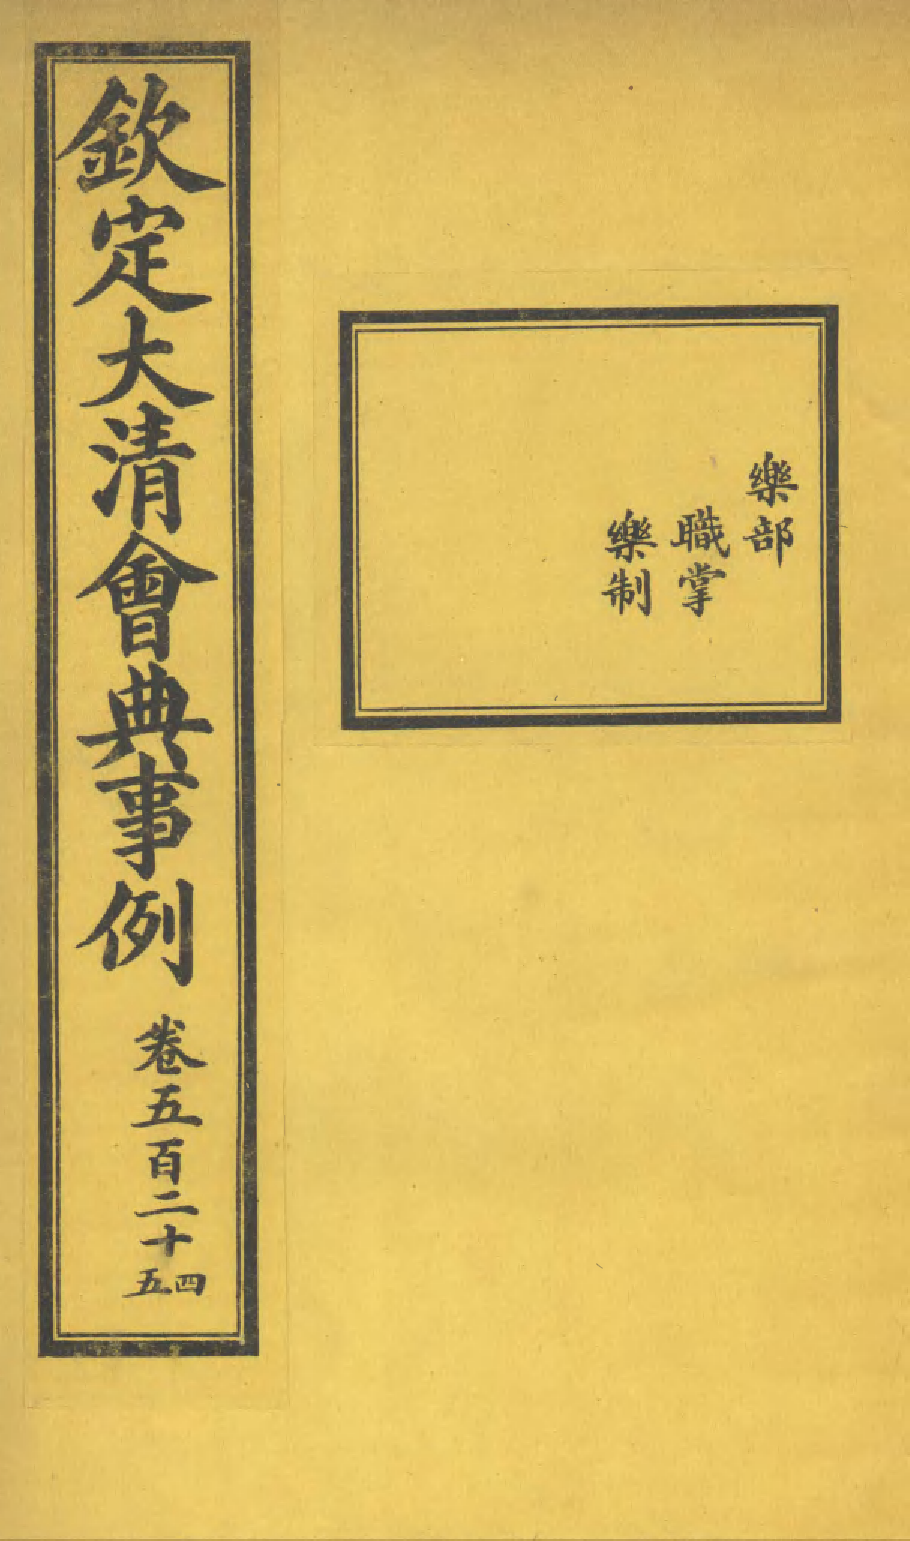 樂部
職掌
樂制
欽定大清會典事例 卷五百二十四五